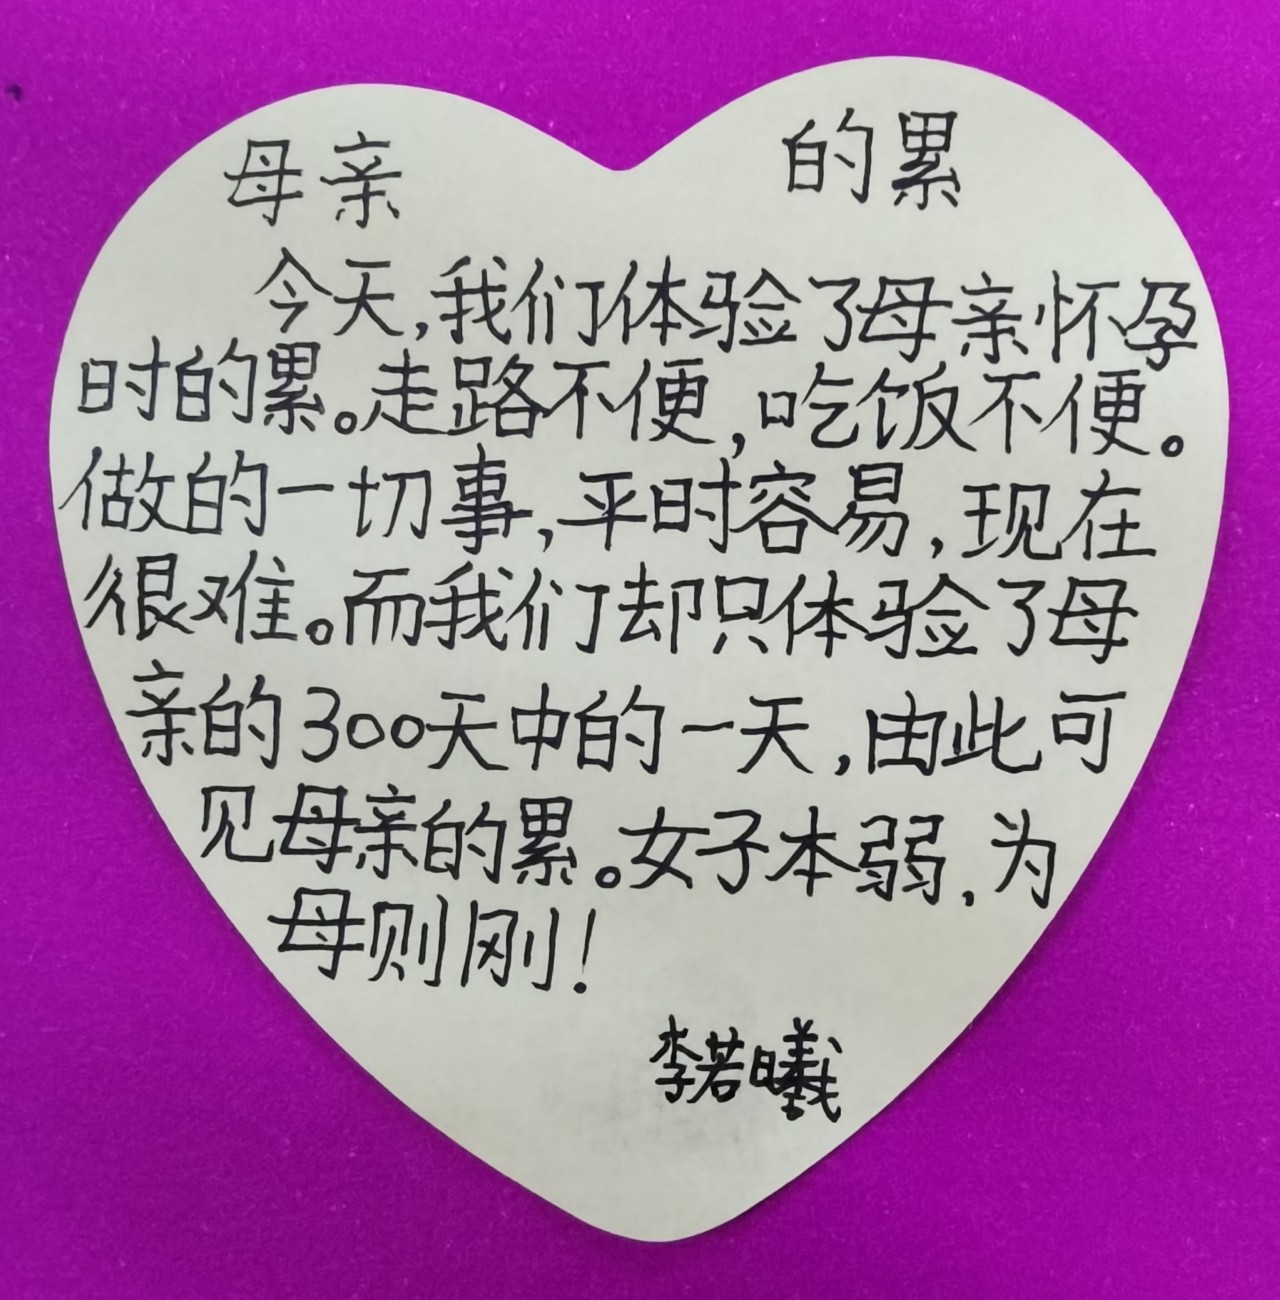 母亲 的累
今天,我们体验了母亲怀孕
时的累。走路不便,吃饭不便。
做的一切事,平时容易,现在
很难。而我们却只体验了母
亲的300天中的一天,由此可
见母亲的累。女子本弱,为
母则刚!
李若曦